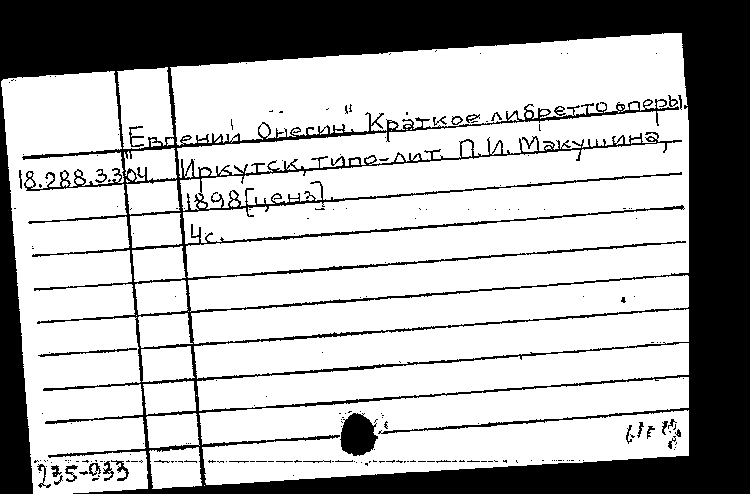 "Евгений Онегин". Краткое либретто оперы.
18.288.3.304. Иркутск, типо-лит. П.И. Макушина,
1898 [ценз].
4с.
235-933